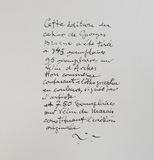 Cette édition du
cahier de Georges
Braque a été tirée
à 845 exemplaires
95 exemplaires sur
vélin d'Arches
numérotés
contenant 1 lithographie
en couleurs, signée par
l'artiste
et 750 exemplaires
sur vélin du Marais
constituant l'édition
originale